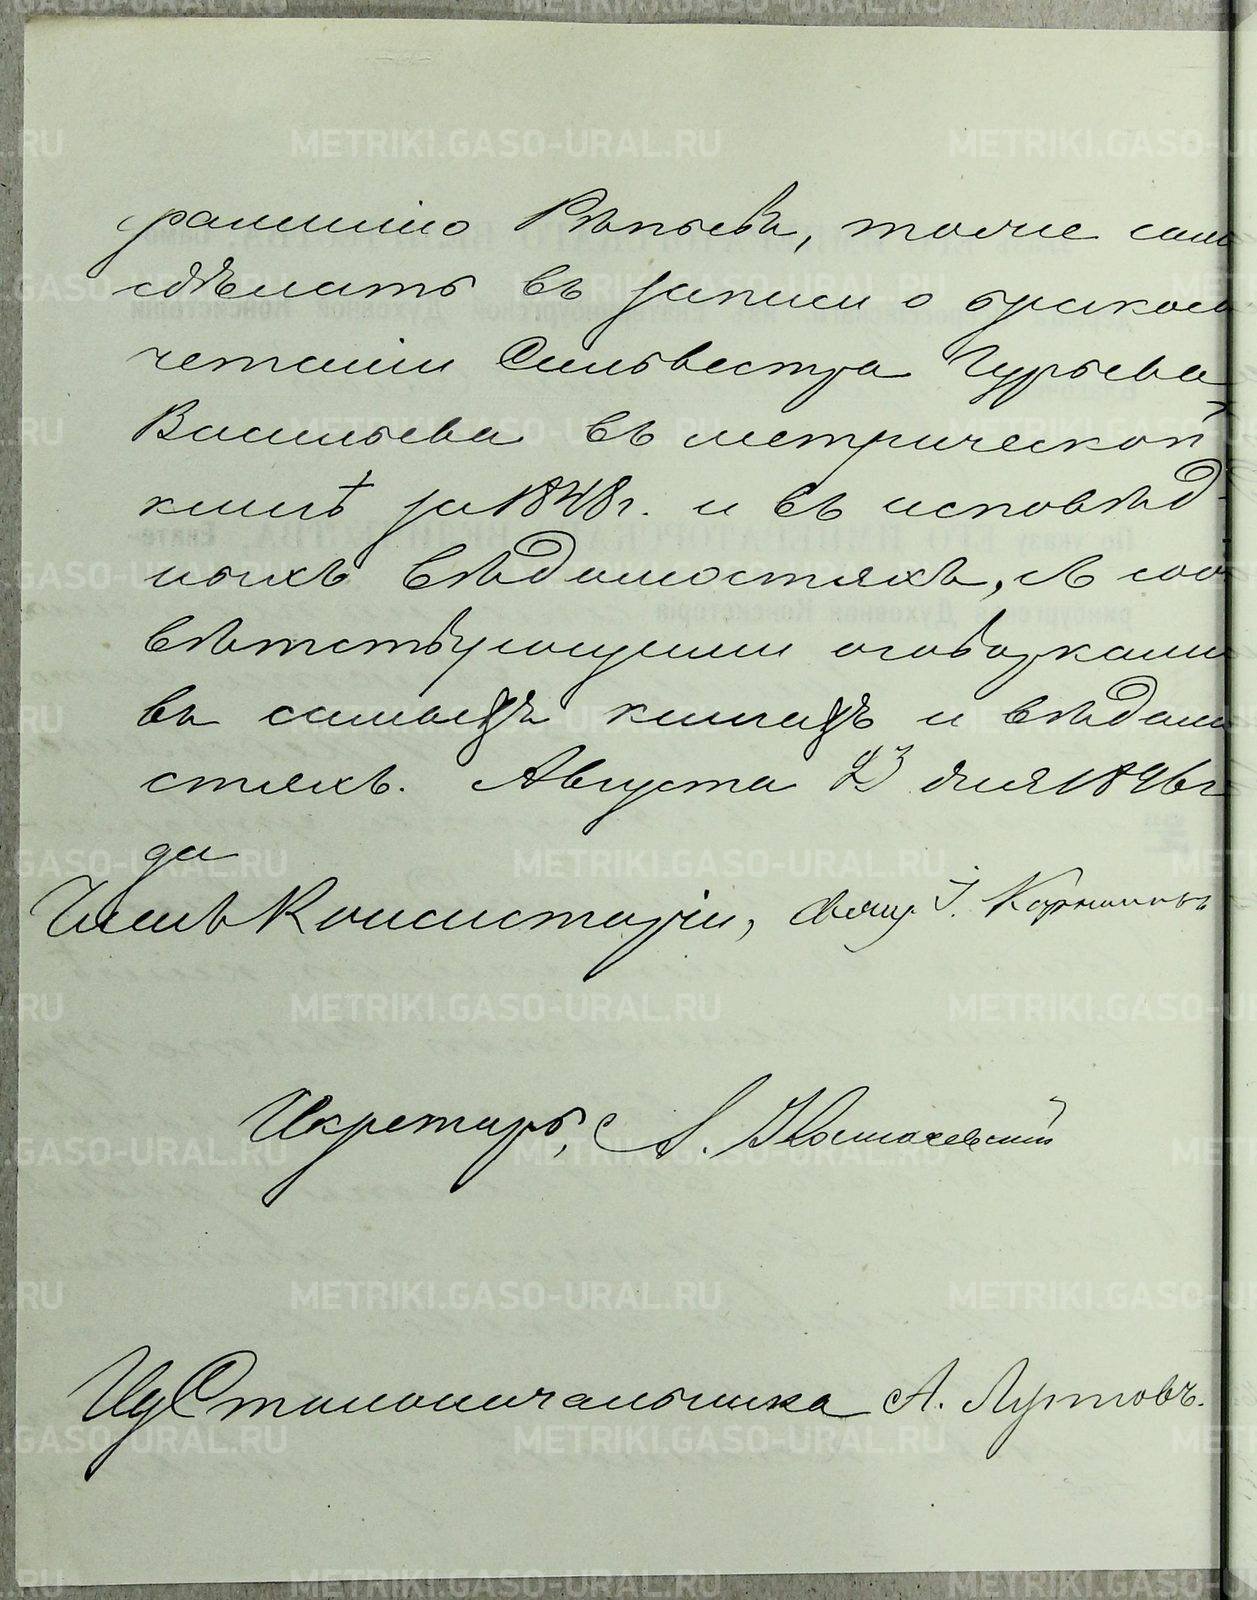 фамилiю Рѣпьевъ, тоже само
сдѣлать въ записи о бракосо
четанiи Сильвестра Гурьева
Васильева въ метрической
книгѣ за 1848 г. и въ исповѣд-
ныхъ вѣдомостяхъ, съ соо
вѣтствующими оговорками
въ самыхъ книгахъ и вѣдомо
стяхъ. Августа 23 дня 1896 г
да
Членъ Консисторiи, Свящ. I.
Секретарь, А.
Ид Столоначальника А.
METRIKI.GASO-URAL.RU